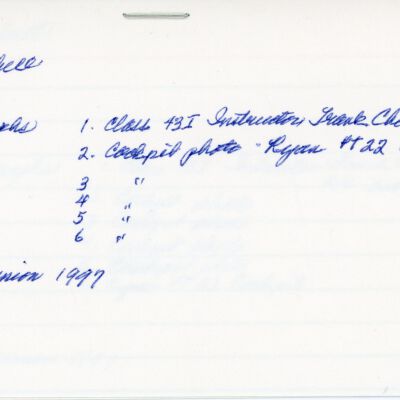 1. Class 43I Instructor Frank
2. Cockpit photo - Ryan #22
3 "
4 "
5 "
6 "
union 1997